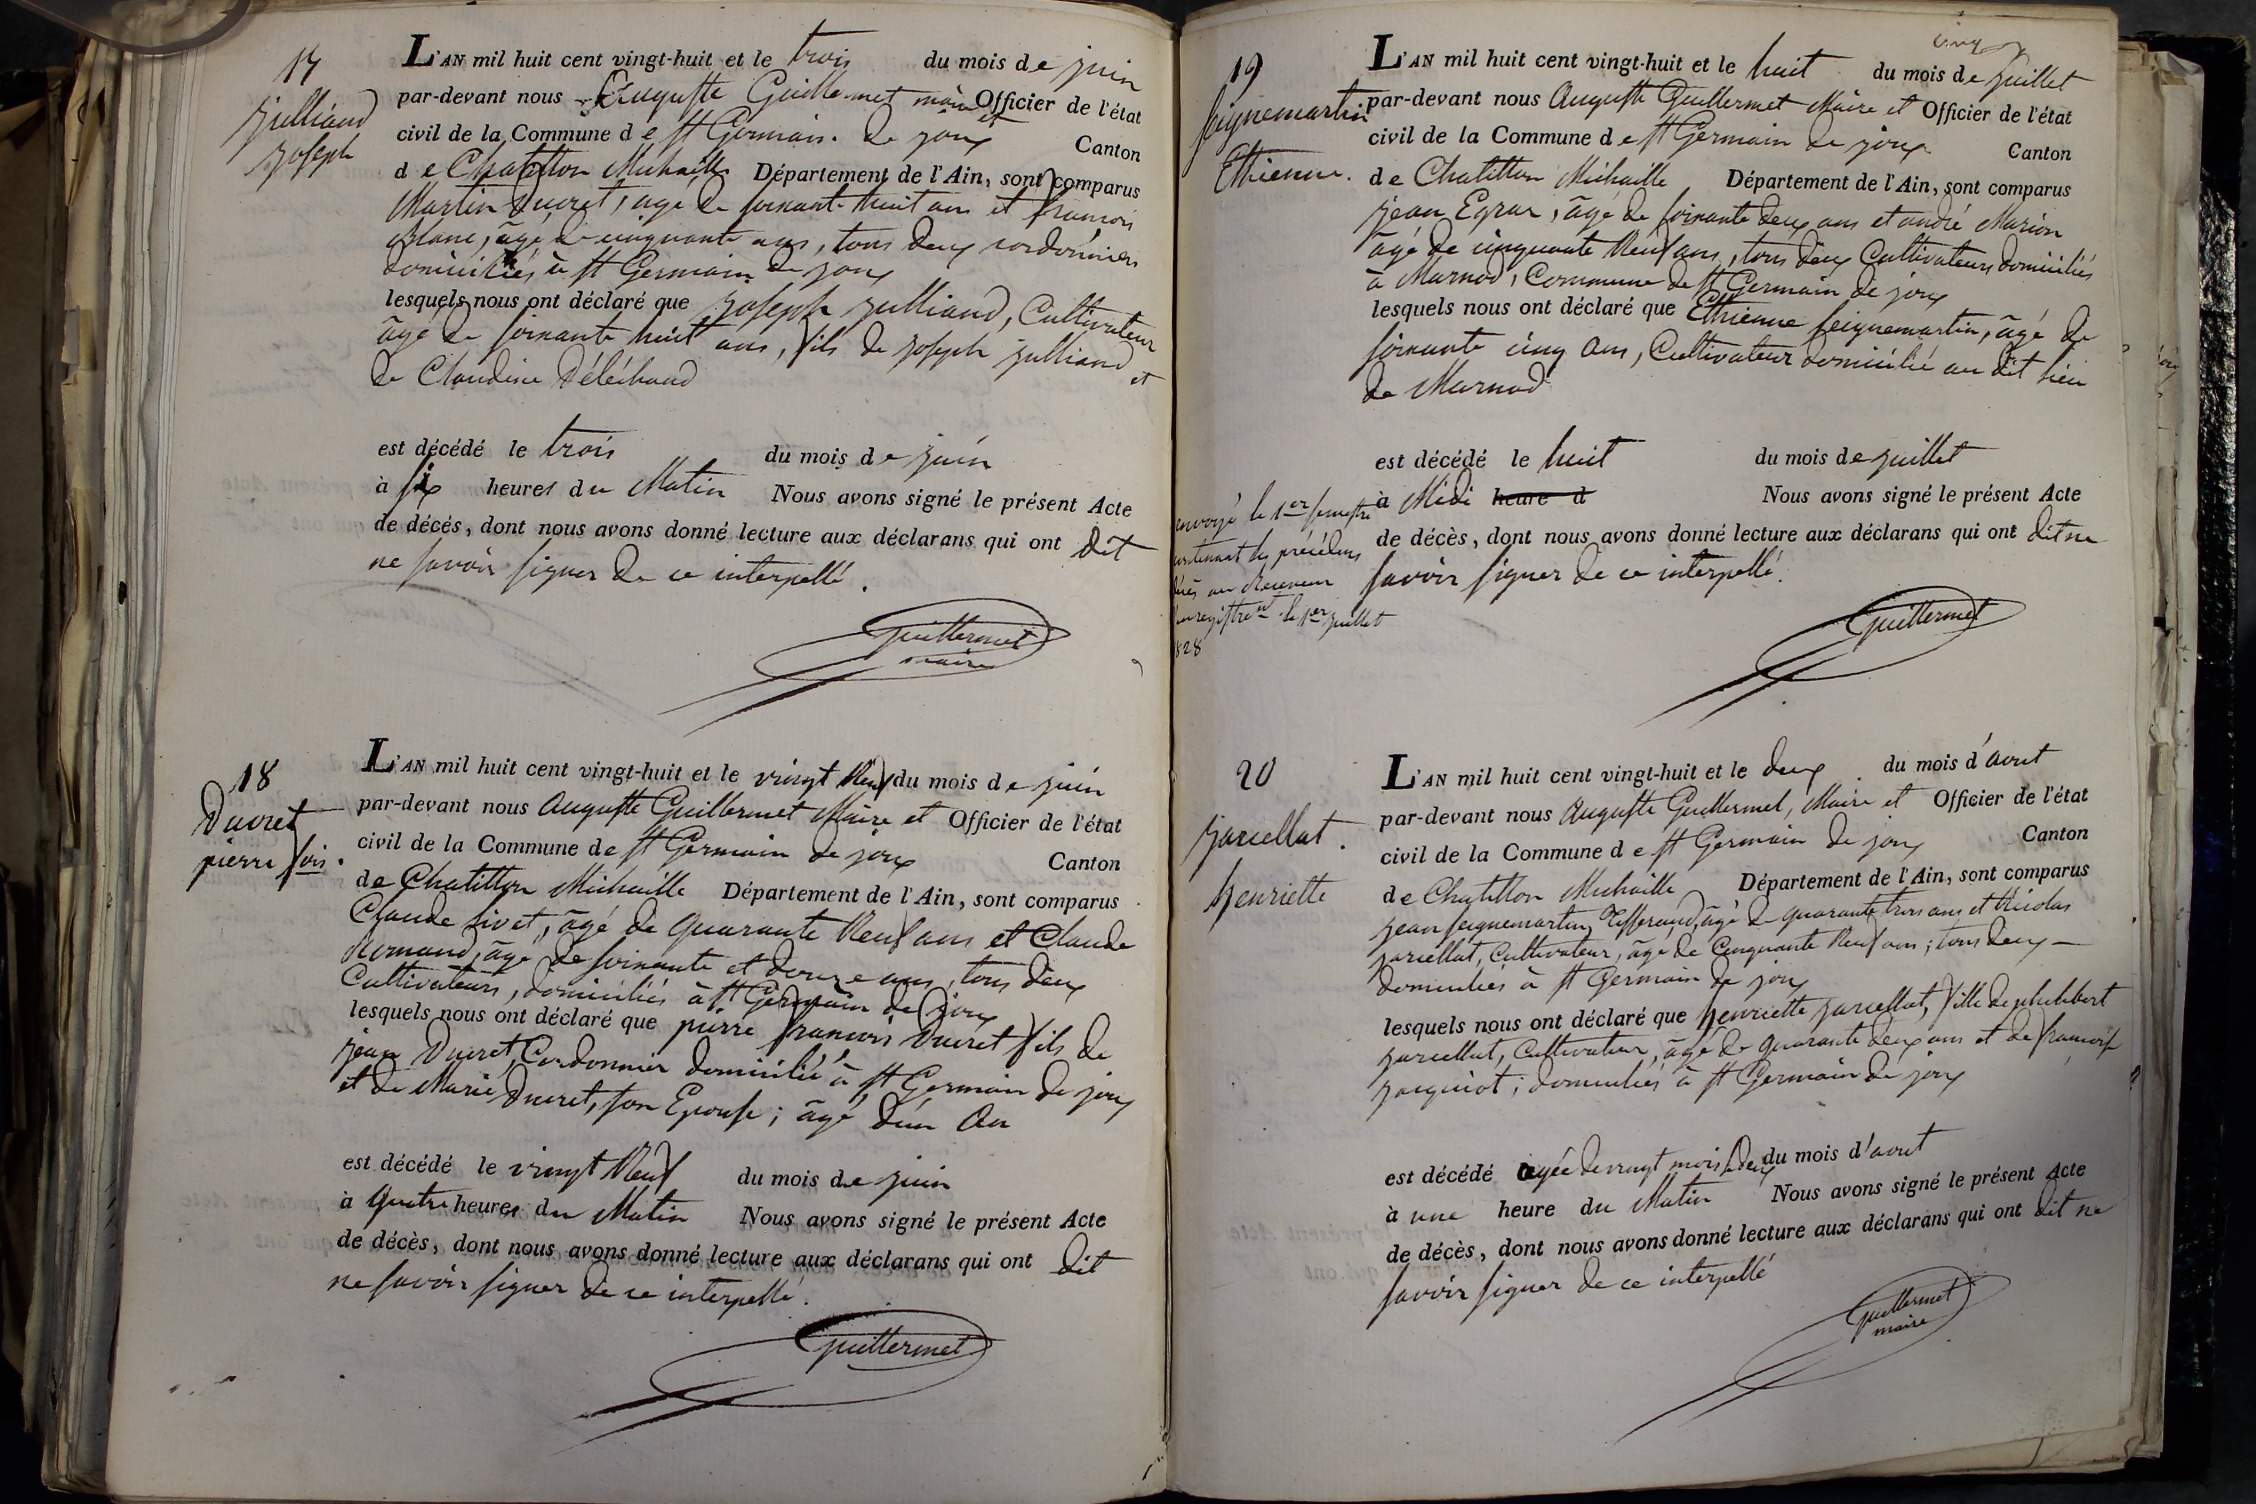 17
Julliand
Joseph
L'AN mil huit cent vingt-huit et le trois du mois de juin
par-devant nous Auguste Guillermet maire et Officier de l'état
civil de la Commune de St Germain de joux Canton
de Chatillon Michaille Département de l'Ain, sont comparus
Martin Ducret, agé de soixante huit ans et francois
Blanc, âgé de cinquante ans, tous deux cordonniers
domiciliés à St Germain de joux
lesquels nous ont déclaré que Joseph Julliand, Cultivateur
âgé de soixante huit ans, fils de Joseph Julliand et
de Claudine Déléchaud
est décédé le trois du mois de juin
à six heures du Matin Nous avons signé le présent Acte
de décés, dont nous avons donné lecture aux déclarans qui ont dit
ne savoir signer de ce interpellé.
Guillermet
maire
18
Ducret
pierre fois.
L'AN mil huit cent vingt-huit et le vingt Neuf du mois de juin
par-devant nous Auguste Guillermet Maire et Officier de l'état
civil de la Commune de St Germain de joux Canton
de Chatillon Michaille Département de l'Ain, sont comparus
Claude Livet, âgé de quarante Neuf ans et Claude
Romand, âgé de soixante et douze ans, tous deux
Cultivateurs, domiciliés à St Germain de joux
lesquels nous ont déclaré que pierre francois Ducret fils de
jean Ducret, Cordonnier domicilié à St Germain de joux
et de Marie Ducret, son Epouse; âgé d'un An
est décédé le vingt Neuf du mois de juin
à quatre heures du Matin Nous avons signé le présent Acte
de décès, dont nous avons donné lecture aux déclarans qui ont dit
ne savoir signer de ce interpellé.
Guillermet
cinq
19
Seignemartin
Ethienne.
L'AN mil huit cent vingt-huit et le huit du mois de juillet
par-devant nous Auguste Guillermet Maire et Officier de l'état
civil de la Commune de St Germain de joux Canton
de Chatillon Michaille Département de l'Ain, sont comparus
jean Egraz, âgé de soixante deux ans et andré Marion
âgé de cinquante Neuf ans, tous deux Cultivateurs domiciliés
à Marnod, Commune de St Germain de joux
lesquels nous ont déclaré que Ethienne Seignemartin, âgé de
soixante cinq ans, Cultivateur domicilié au dit lieu
de Marnod
est décédé le huit du mois de juillet
à Midi heure d Nous avons signé le présent Acte
de décès, dont nous avons donné lecture aux déclarans qui ont dit ne
savoir signer de ce interpellé.
Guillermet
envoyé le 1er semestre
contenant les précédens
décès au Receveur
l'enregistrent le 1er juillet
1828
20
Jarcellat.
henriette
L'AN mil huit cent vingt-huit et le deux du mois d'aout
par-devant nous Auguste Guillermet, Maire et Officier de l'état
civil de la Commune de St Germain de joux Canton
de Chatillon Michaille Département de l'Ain, sont comparus
jean Seignemartin, Tisserand, âgé de quarante trois ans et Nicolas
Jarcellat, Cultivateur, âgé de Cinquante Neuf ans; tous deux
domiciliés à St Germain de joux
lesquels nous ont déclaré que henriette Jarcellat, fille de philibert
Jarcellat, Cultivateur, âgé de quarante deux ans et de francoise
Jacquiot; domiciliés à St Germain de joux
est décédé agée de vingt mois le deux du mois d'aout
à une heure du Matin Nous avons signé le présent Acte
de décès, dont nous avons donné lecture aux déclarans qui ont dit ne
savoir signer de ce interpellé
Guillermet
maire